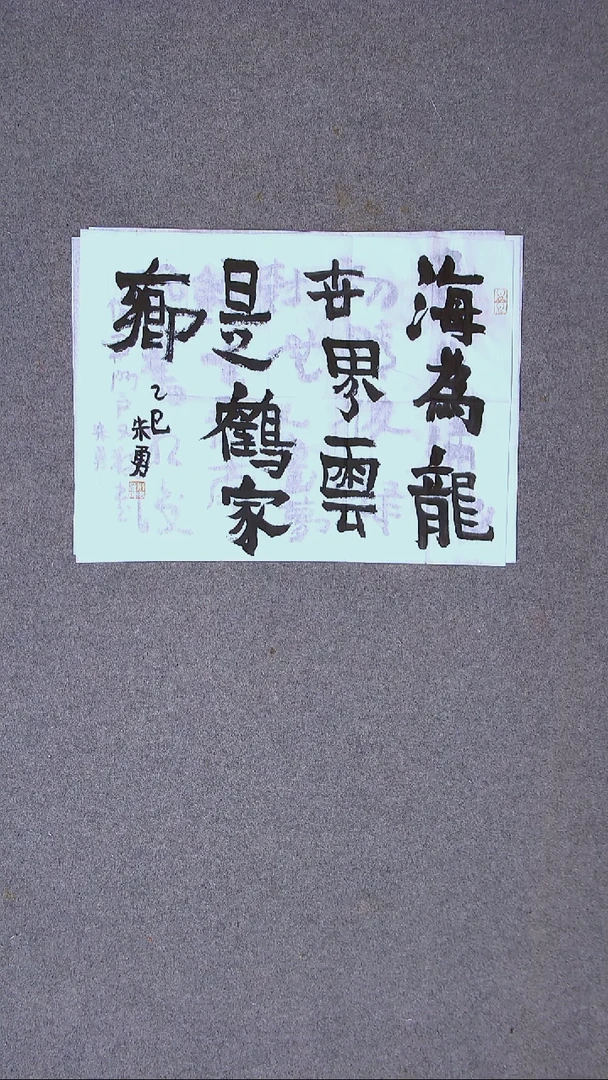 海為龍
世界雲
是鶴家
鄉
乙巳
朱勇